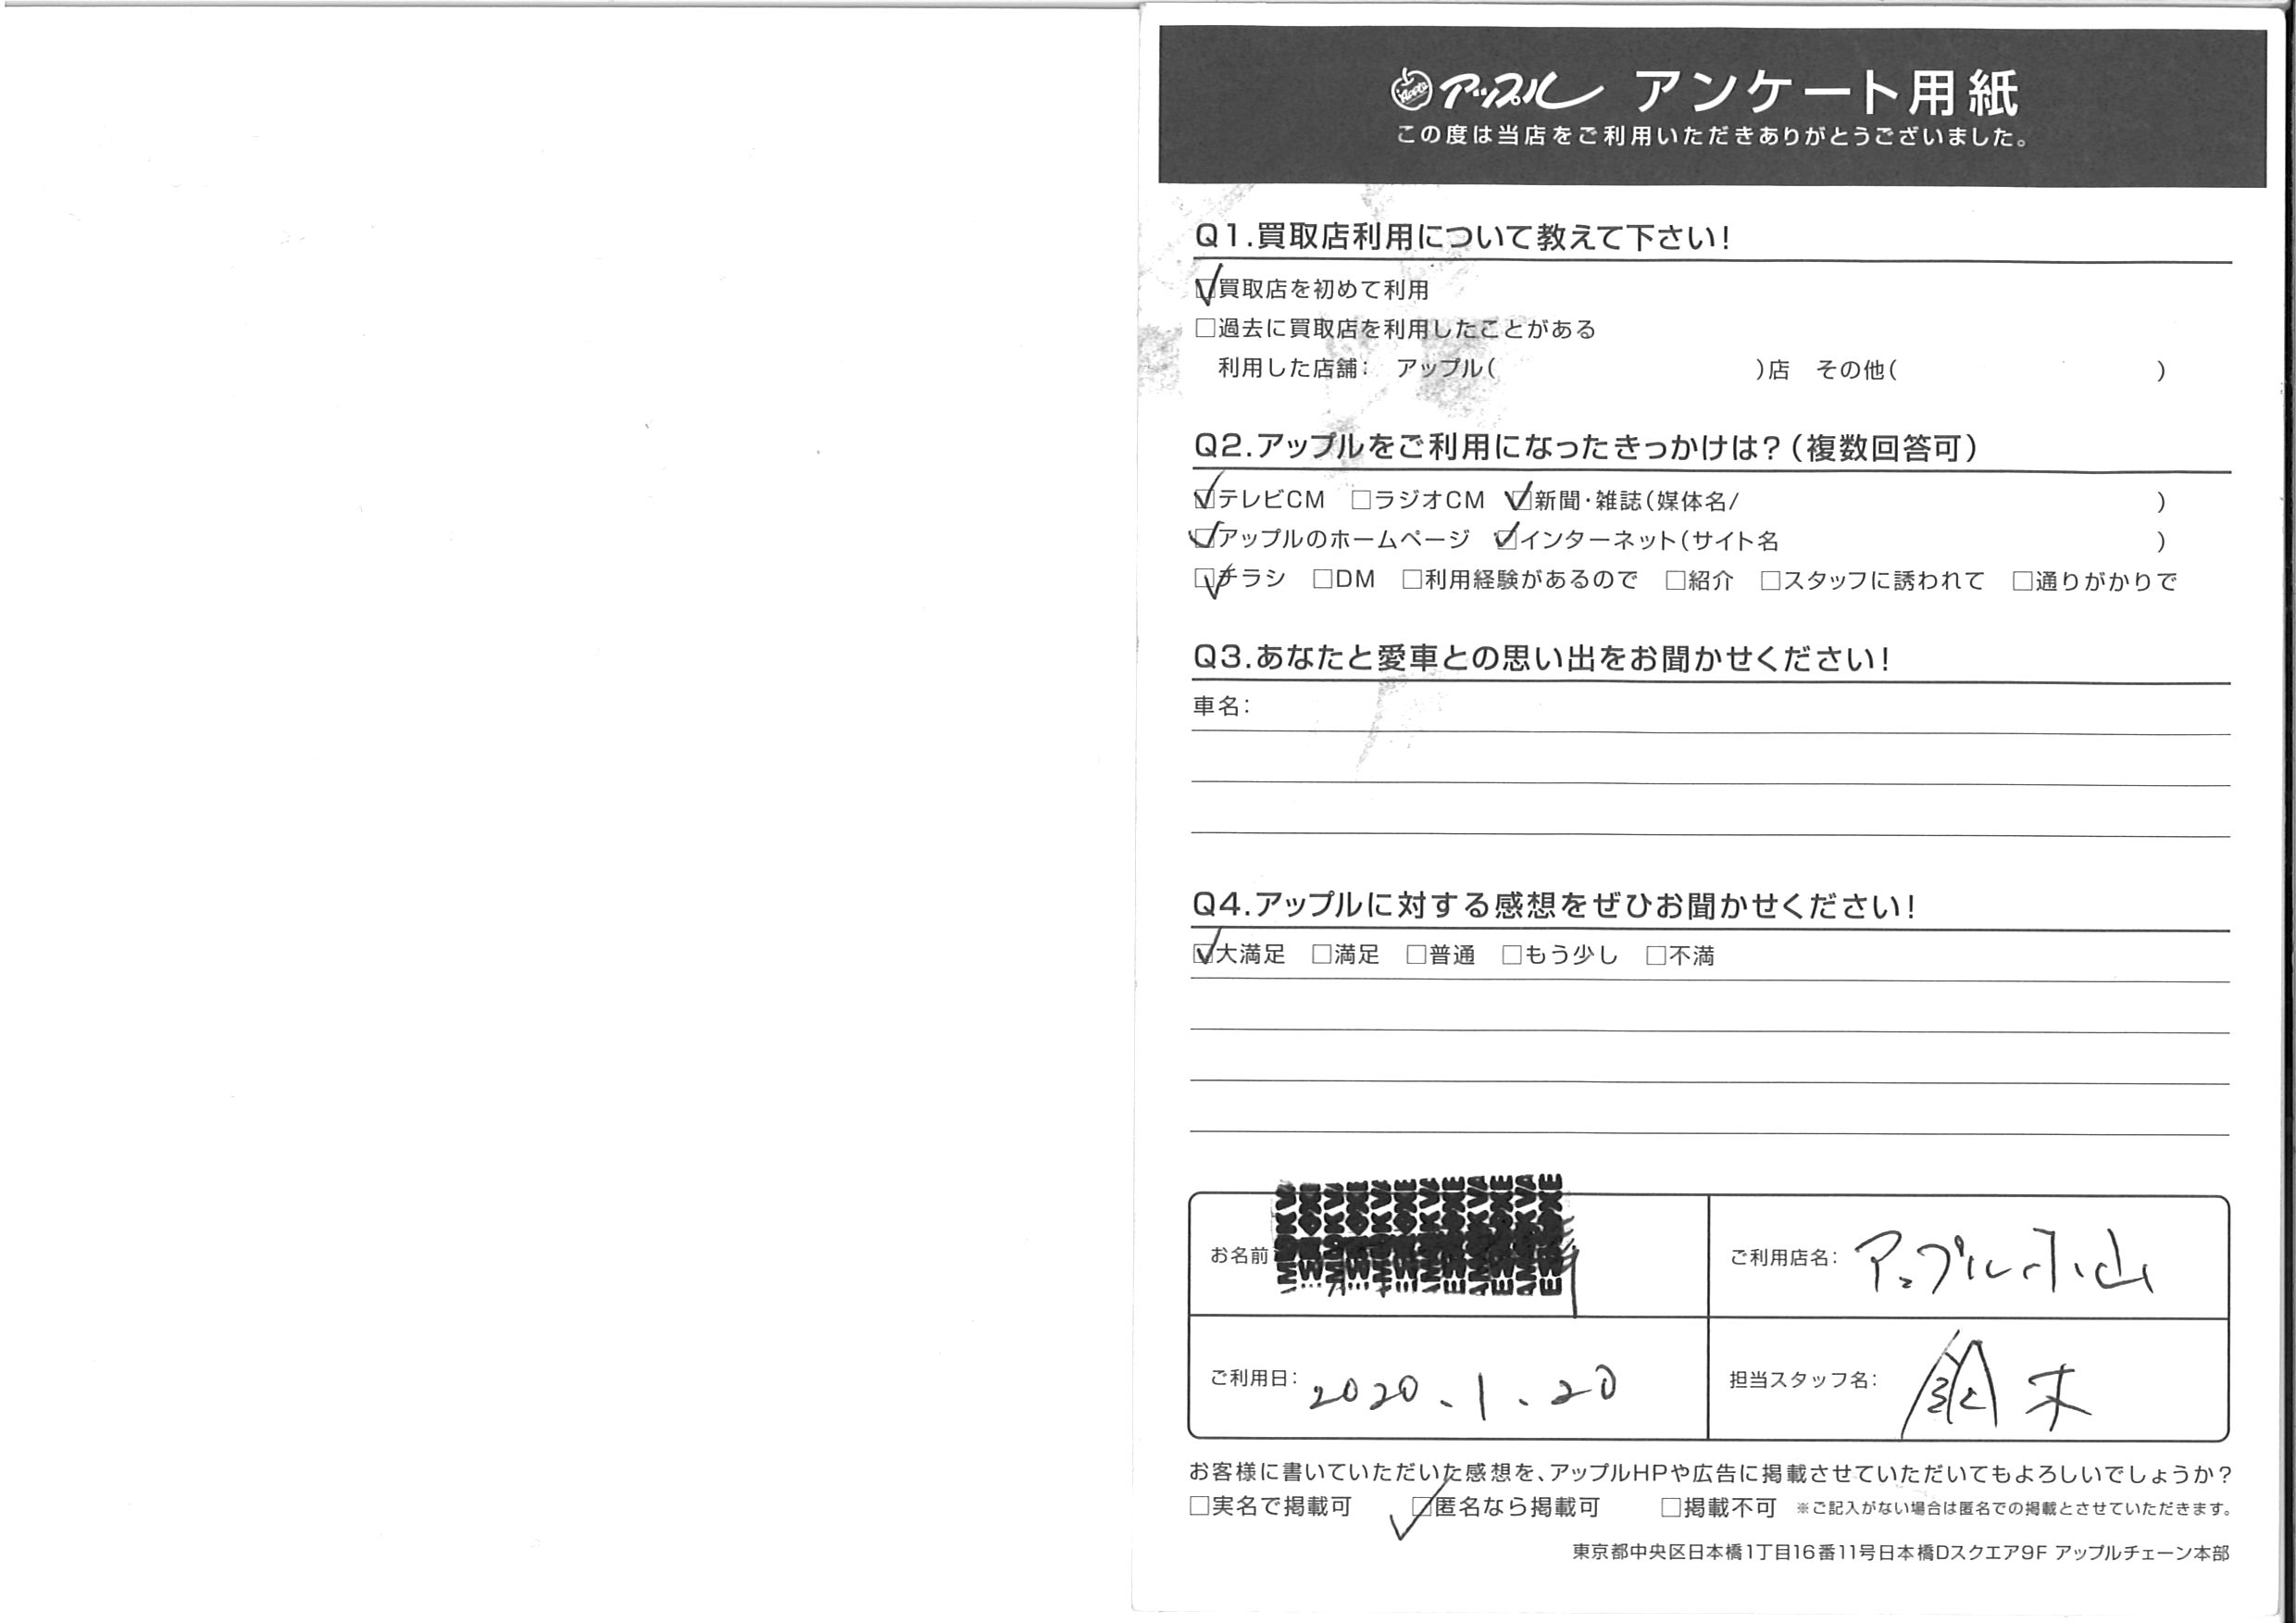 アップル アンケート用紙
この度は当店をご利用いただきありがとうございました。
Q1.買取店利用について教えて下さい!
☑買取店を初めて利用
□過去に買取店を利用したことがある
利用した店舗: アップル( )店 その他( )
Q2.アップルをご利用になったきっかけは?(複数回答可)
☑テレビCM □ラジオCM ☑新聞・雑誌(媒体名/ )
☑アップルのホームページ ☑インターネット(サイト名 )
☑チラシ □DM □利用経験があるので □紹介 □スタッフに誘われて □通りがかりで
Q3.あなたと愛車との思い出をお聞かせください!
車名:
Q4.アップルに対する感想をぜひお聞かせください!
☑大満足 □満足 □普通 □もう少し □不満
お名前
ご利用店名: アップル小山
ご利用日: 2020.1.20
担当スタッフ名: 鈴木
お客様に書いていただいた感想を、アップルHPや広告に掲載させていただいてもよろしいでしょうか?
□実名で掲載可 ☑匿名なら掲載可 □掲載不可 ※ご記入がない場合は匿名での掲載とさせていただきます。
東京都中央区日本橋1丁目16番11号日本橋Dスクエア9F アップルチェーン本部